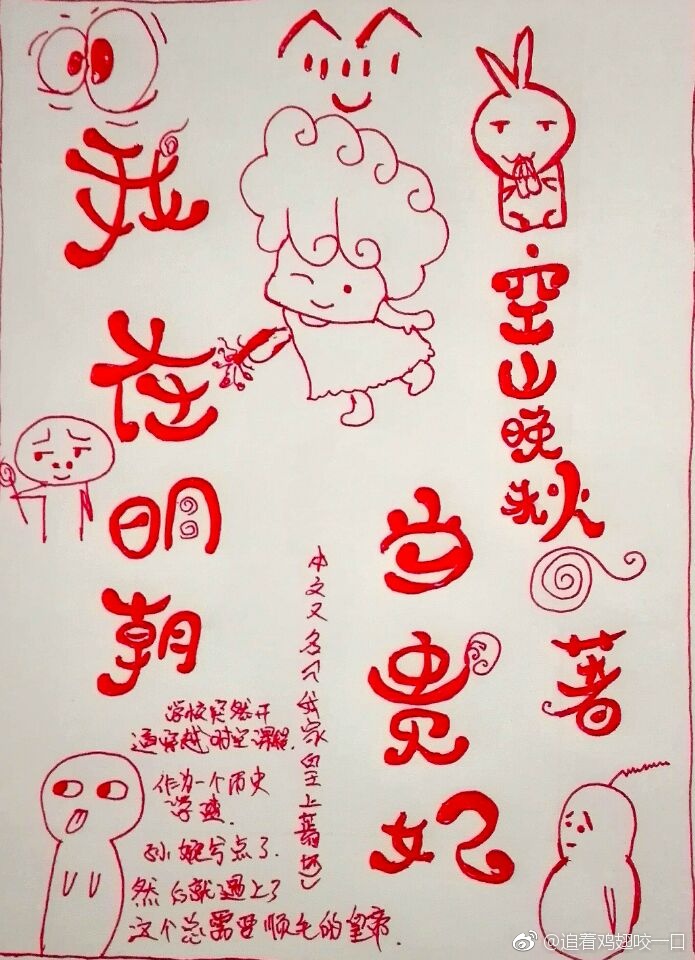 我在明朝
当贵妃
空山晚秋
著
本文又名《我家皇上蕃坏》
学校突然开
通穿越时空课程.
作为一个历史
学渣.
孙婉兮点了.
然后就遇上了
这个总需要顺毛的皇帝.
@追着鸡翅咬一口